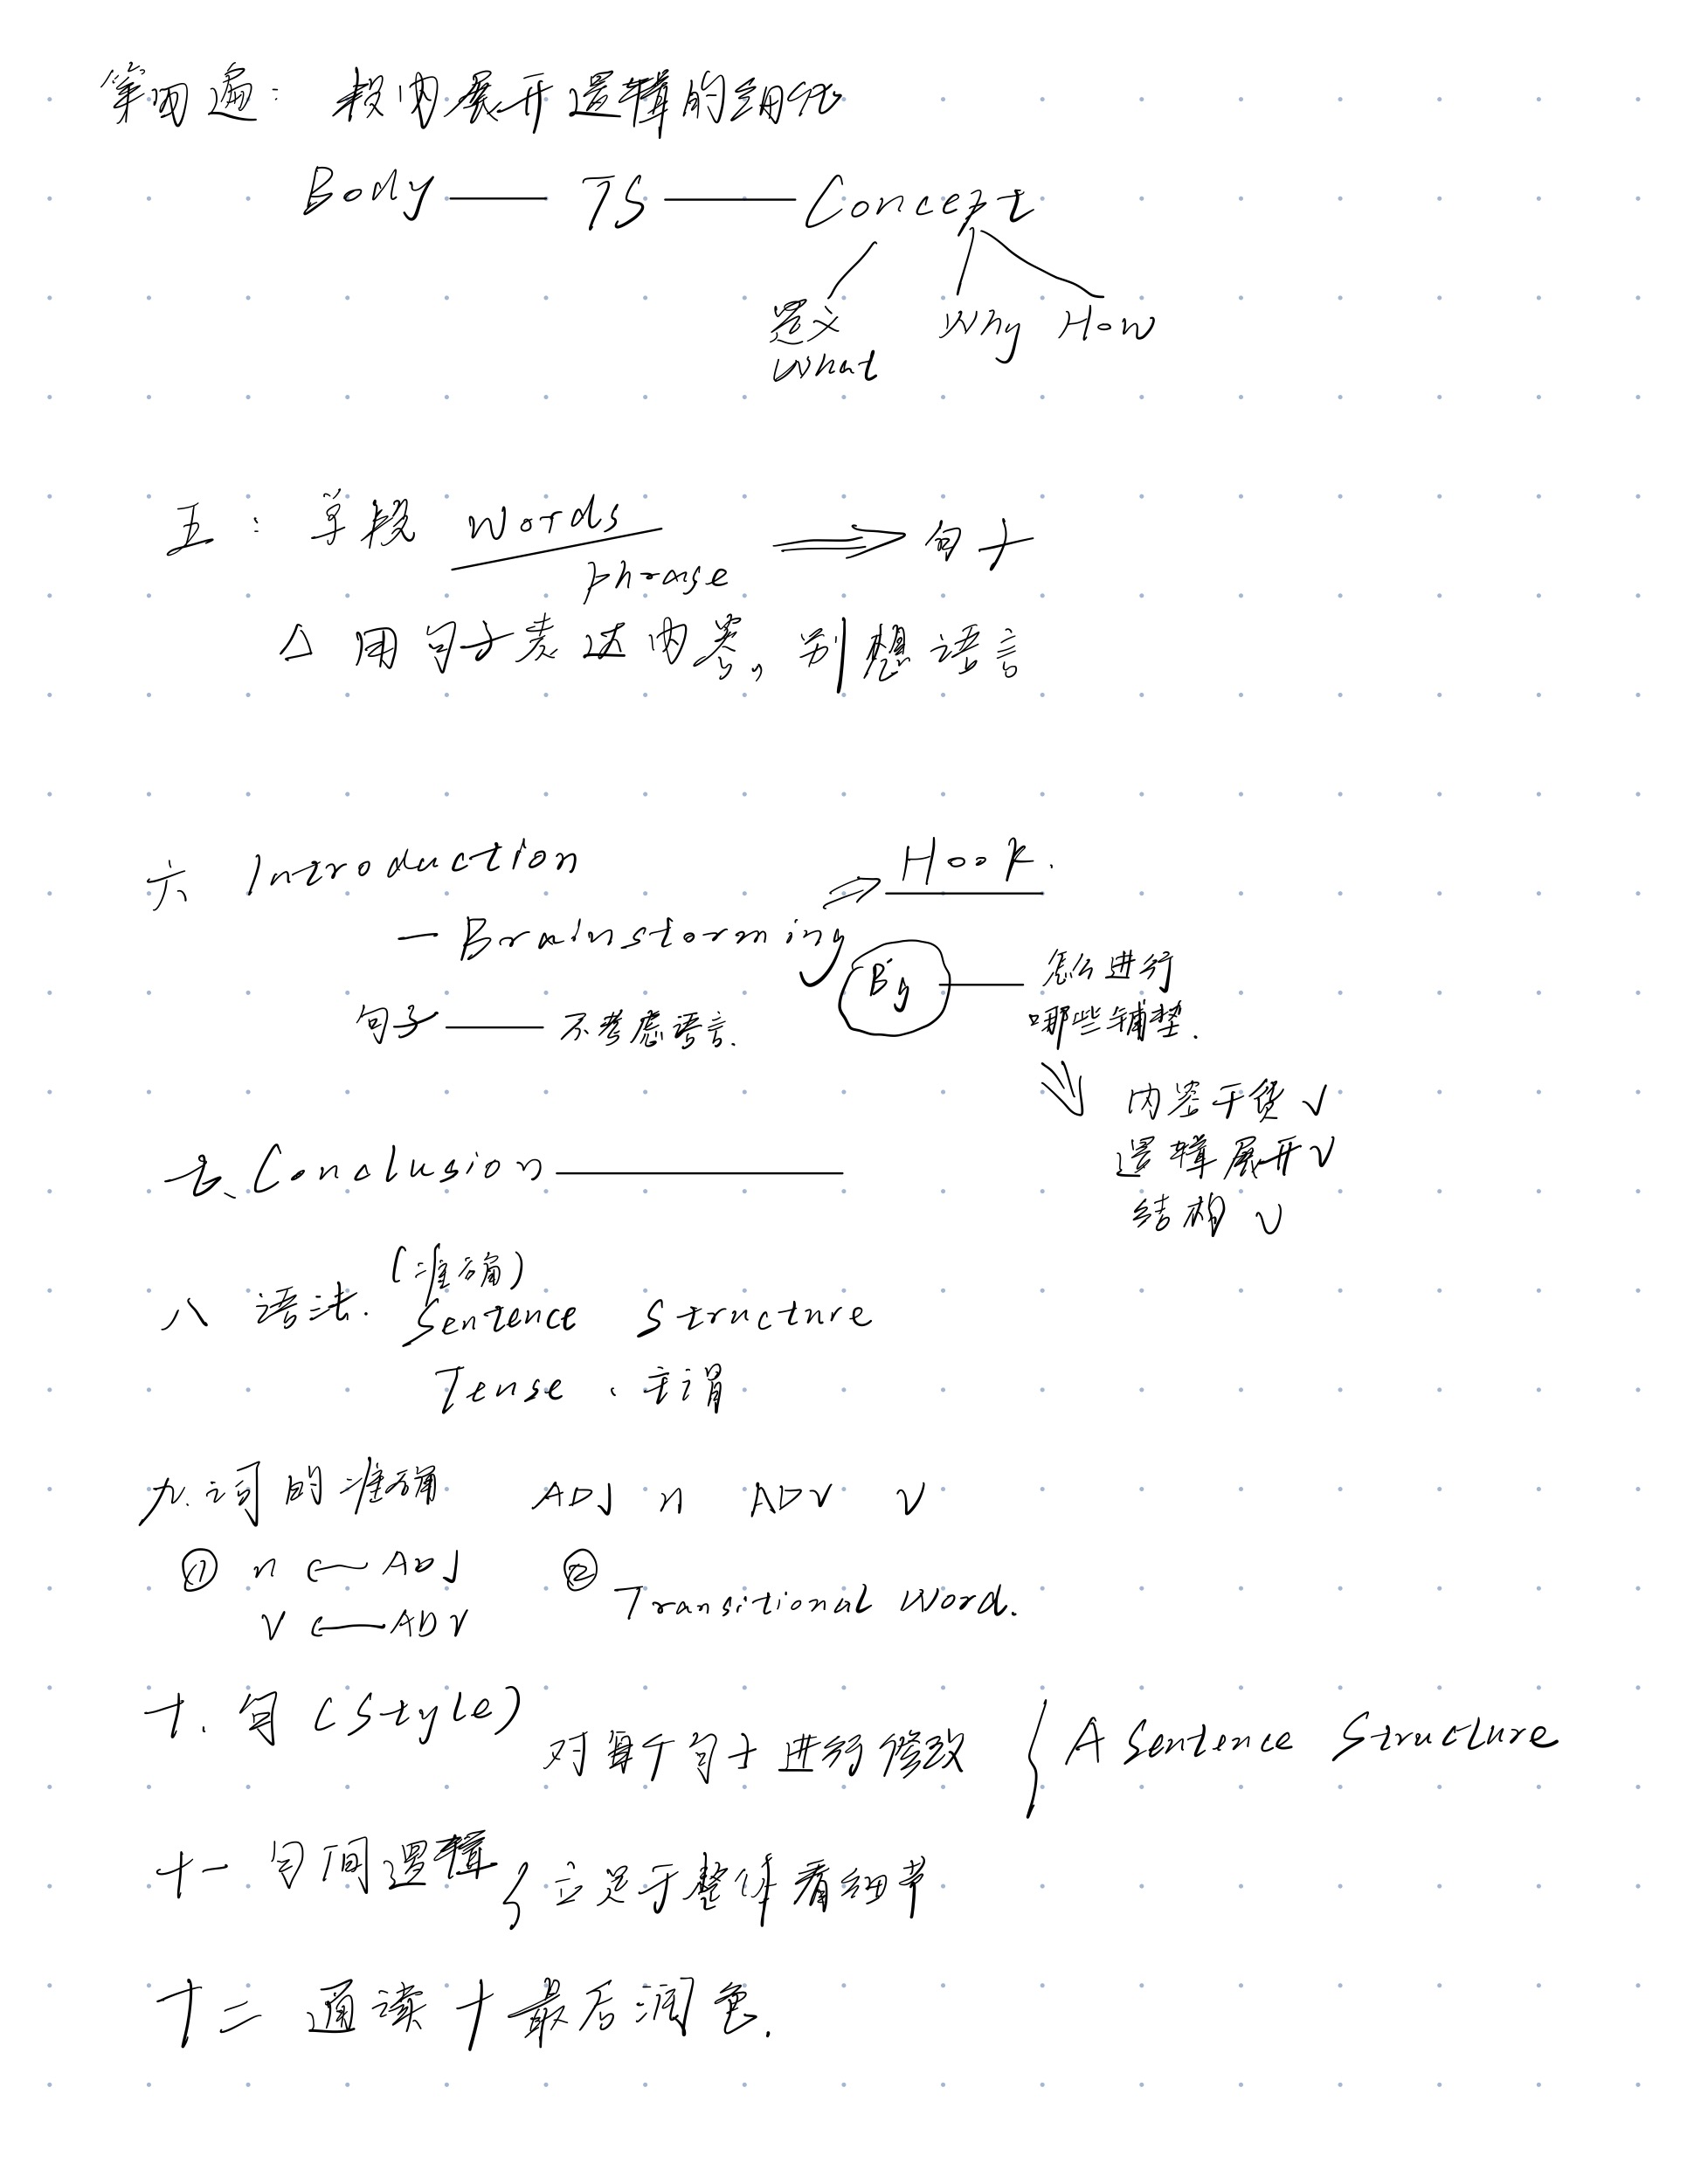 第四遍: 段内展开逻辑的细化
Body — TS — Concept
定义 Why How
What
五: 单段 Words ⇒ 句子
phrase
△ 用句子表达内容, 别想语言
六 Introduction ⇒ Hook.
— Brainstorming
Bg — 怎么进行
句子 — 不考虑语言. 哪些铺垫.
⇒ 内容干货 √
逻辑展开 √
结构 √
七、Conclusion —
八 语法. (准确)
Sentence Structure
Tense、主谓
九.词的准确 ADJ n ADV v
① n ← ADJ ②
v ← ADV Transitional Word.
十. 句 (Style)
对每个句子进行修改 { A Sentence Structure
十一 句间逻辑 { 立足于整体看细节
十二 通读 + 最后润色.